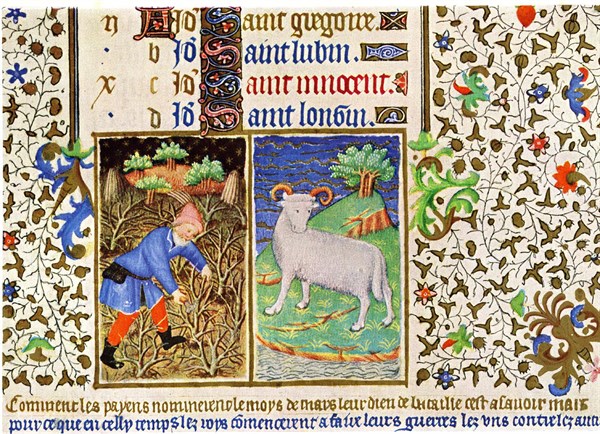 n A Id Saint gregoire.
b Id Saint lubin.
x c Id Saint innocent.
d Id Saint longin.
Comment les payens nommerent le moys de mars leur dieu de bataille cest asavoir mars
pour ce que en celly temps lez roys comencerent a faire leurs guerres lez uns contre lez autr